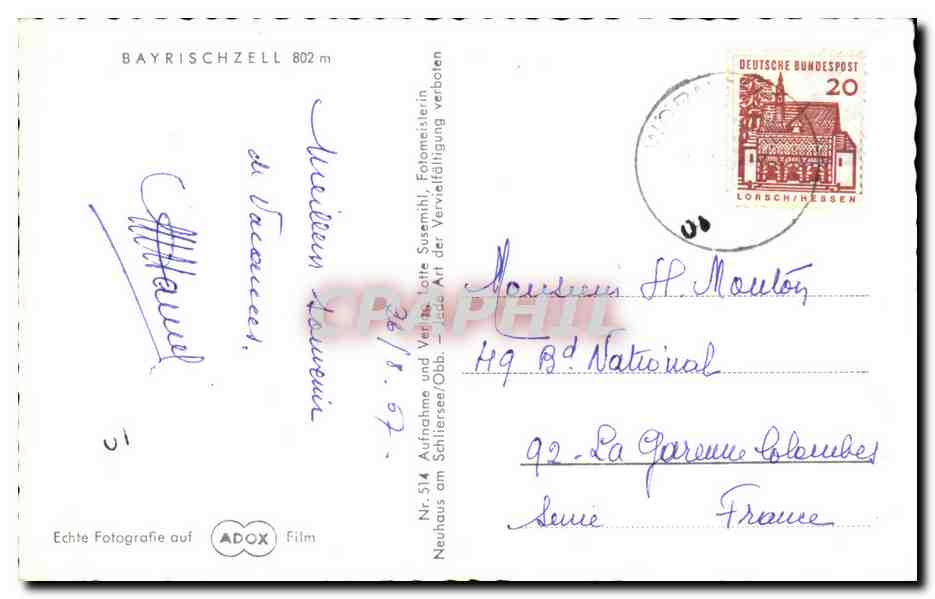 BAYRISCHZELL 802 m
Meilleur souvenir
de Vacances.
26/8.67.
Echte Fotografie auf ADOX Film
Nr. 514 Aufnahme und Verlag: Lotte Susemihl, Fotomeisterin
Neuhaus am Schliersee/Obb. – Jede Art der Vervielfältigung verboten
DEUTSCHE BUNDESPOST
20
LORSCH/HESSEN
Monsieur H. Mouton
49 Bd National
92 - La Garenne Colombes
Seine France
CPAPHIL